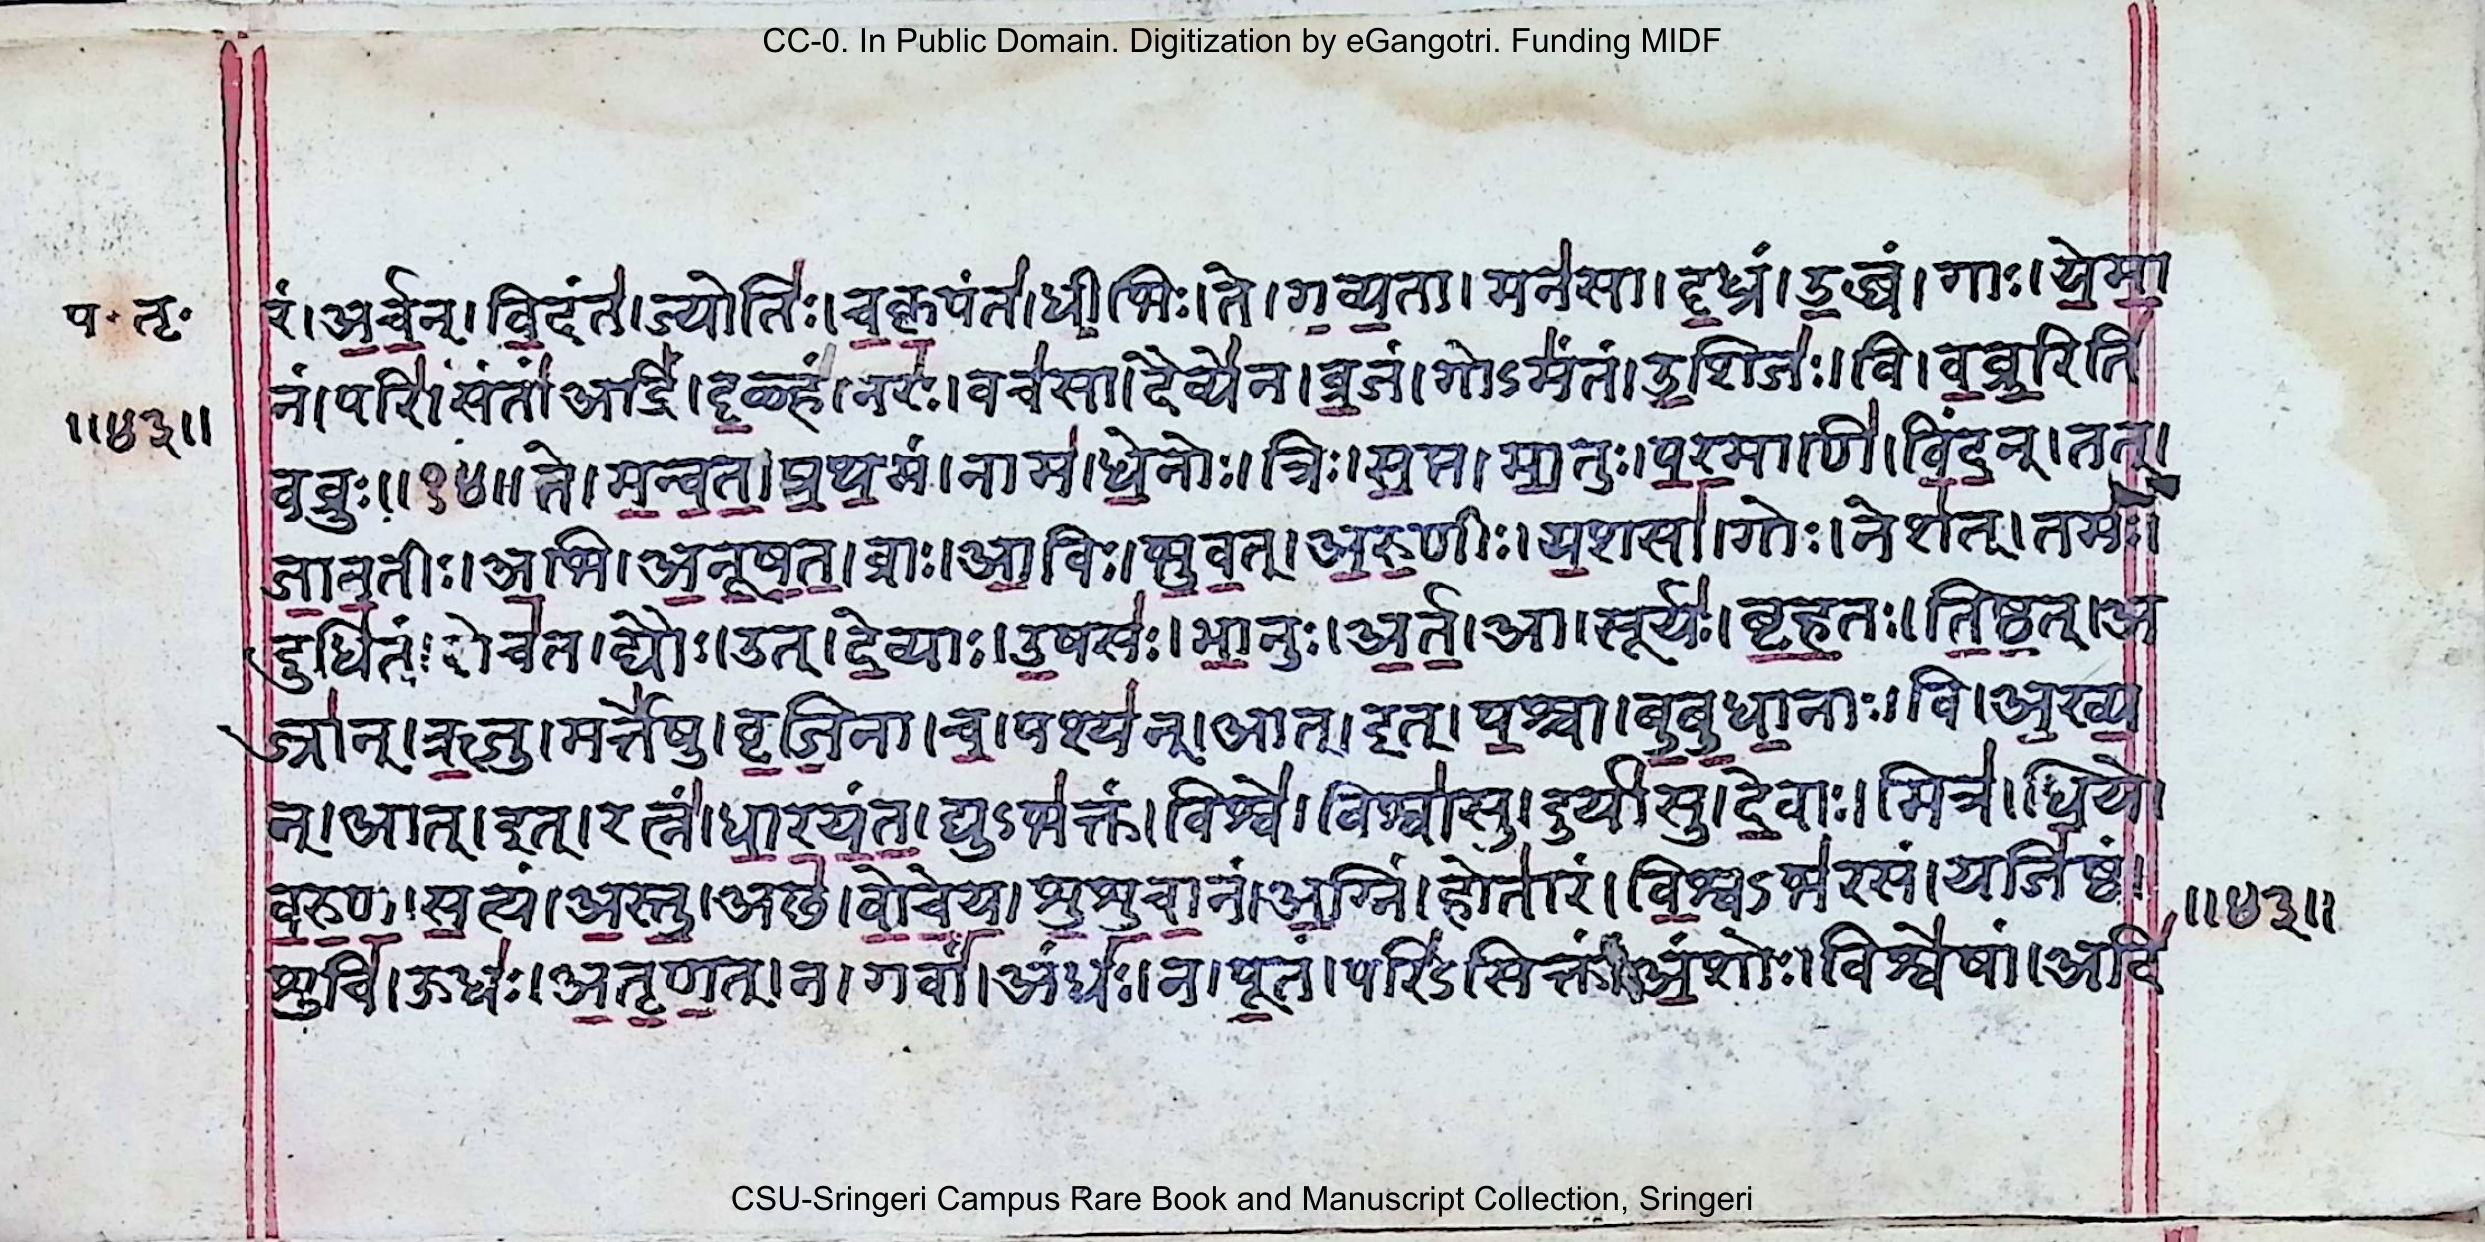 CC-0. In Public Domain. Digitization by eGangotri. Funding MIDF
प॰ तृ॰
॥४३॥
रं।अ॒र्च॒न्।वि॒दंत॑।ज्योतिः॑।च॒कृ॒पंत॑।धी॒भिः।ते।ग॒व्य॒ता।मन॑सा।दृ॒ध्रं।उ॒ब्धं।गाः।ये॒मा॒
नं।परि॑।संतं॑।अद्रिं॑।दृ॒ळ्हं।नरः॑।वच॑सा।दैव्ये॑न।व्र॒जं।गोऽमं॑तं।उ॒शिजः॑।वि।व॒व्रु॒रिति॑
वव्रुः॥१४॥ते।म॒न्व॒त॒।प्र॒थ॒मं।नाम॑।धे॒नोः।त्रिः।स॒प्त।मा॒तुः।प॒र॒माणि॑।विं॒द॒न्।तत्।
जा॒न॒तीः।अ॒भि।अ॒नू॒ष॒त॒।व्राः।आ॒विः।भु॒व॒त्।अ॒रु॒णीः।य॒शसा॑।गोः।नेश॑त्।तमः॑।
दुधि॑तं।रोच॑त।द्यौः।उत्।दे॒व्याः।उ॒षसः॑।भा॒नुः।अ॒र्त॒।आ।सूर्यः॑।बृ॒ह॒तः।ति॒ष्ठ॒त्।अ
ज्रा॑न्।ऋ॒जु।मर्त्ते॑षु।वृ॒जि॒ना।च॒।पश्य॑न्।आत्।इत्।प॒श्चा।बु॒बु॒धा॒नाः।वि।अ॒ख्य॒
न्।आत्।इत्।रत्नं॑।धा॒र॒यं॒त॒।द्युऽभ॑क्तं।विश्वे॑।विश्वा॑सु।दुर्या॑सु।दे॒वाः।मित्र॑।धि॒ये।
व॒रु॒ण॒।स॒त्यं।अ॒स्तु॒।अछ॑।वो॒चे॒य॒।शु॒शु॒चा॒नं।अ॒ग्निं।होता॑रं।वि॒श्वऽभ॑रसं।यजि॑ष्ठं।
॥४३॥
शुचि॑।ऊधः॑।अ॒तृ॒ण॒त्।न।गवां॑।अंधः॑।न।पू॒तं।परि॑ऽसिक्तं।अं॒शोः।विश्वे॑षां।अदि॑
CSU-Sringeri Campus Rare Book and Manuscript Collection, Sringeri